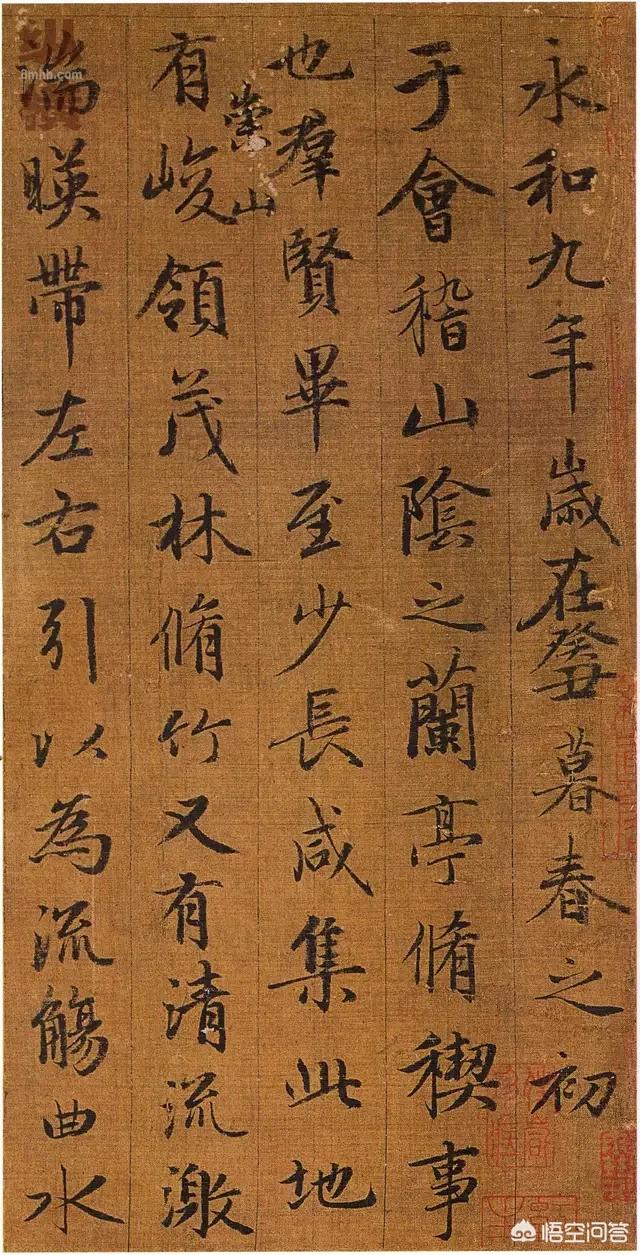 永和九年歲在癸丑暮春之初
于會稽山陰之蘭亭脩稧事
也羣賢畢至少長咸集此地
有崇山峻領茂林脩竹又有清流激
湍暎帶左右引以為流觴曲水
8mhh.com
悟空问答